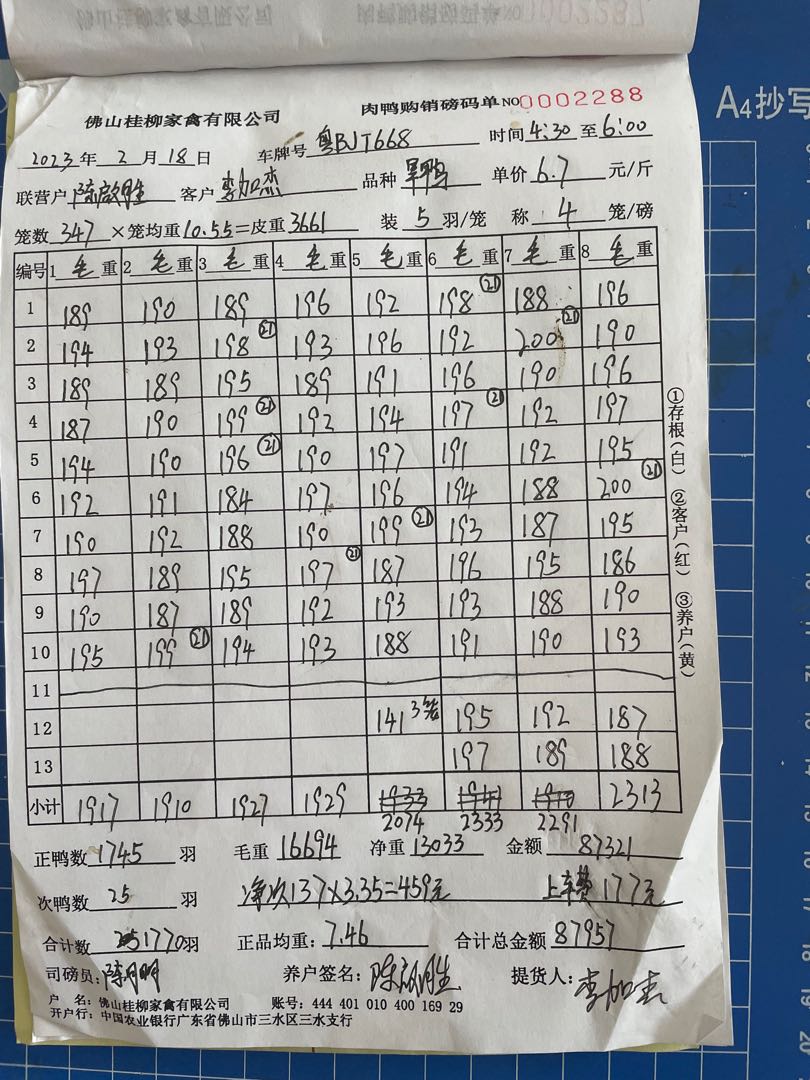 NO 0002287
佛山桂柳家禽有限公司 肉鸭购销磅码单 NO 0002288
2023年 2月 18日 车牌号 粤BJT668 时间 4:30 至 6:00
联营户 陈啟胜 客户 李加杰 品种 旱鸭 单价 6.7 元/斤
笼数 347 ×笼均重 10.55 =皮重 3661 装 5 羽/笼 称 4 笼/磅
编号 1 毛 重 2 毛 重 3 毛 重 4 毛 重 5 毛 重 6 毛 重 7 毛 重 8 毛 重
1 189 190 189 196 192 198 ㉑ 188 196
2 194 193 198 ㉑ 193 196 192 200 ㉑ 190
3 189 189 195 189 191 196 190 196
4 187 190 199 ㉑ 192 194 197 ㉑ 192 197
5 194 190 196 ㉑ 190 197 191 192 195
6 192 191 184 197 196 194 188 200 ㉑
7 190 192 188 190 199 ㉑ 193 187 195
8 197 189 195 197 ㉑ 187 196 195 186
9 190 187 189 192 193 193 188 190
10 195 199 ㉑ 194 193 188 191 190 193
11
12 141 3笼 195 192 187
13 197 189 188
小计 1917 1910 1927 1929 1933 1941 1910 2313
2074 2333 2291
①存根(白) ②客户(红) ③养户(黄)
正鸭数 1745 羽 毛重 16694 净重 13033 金额 87321
次鸭数 25 羽 净次137×3.35=459元 上车费177元
合计数 1770羽 正品均重: 7.46 合计总金额 87957
司磅员: 陈月明 养户签名: 陈啟胜 提货人: 李加杰
户 名: 佛山桂柳家禽有限公司 账号: 444 401 010 400 169 29
开户行: 中国农业银行广东省佛山市三水区三水支行
A4抄写